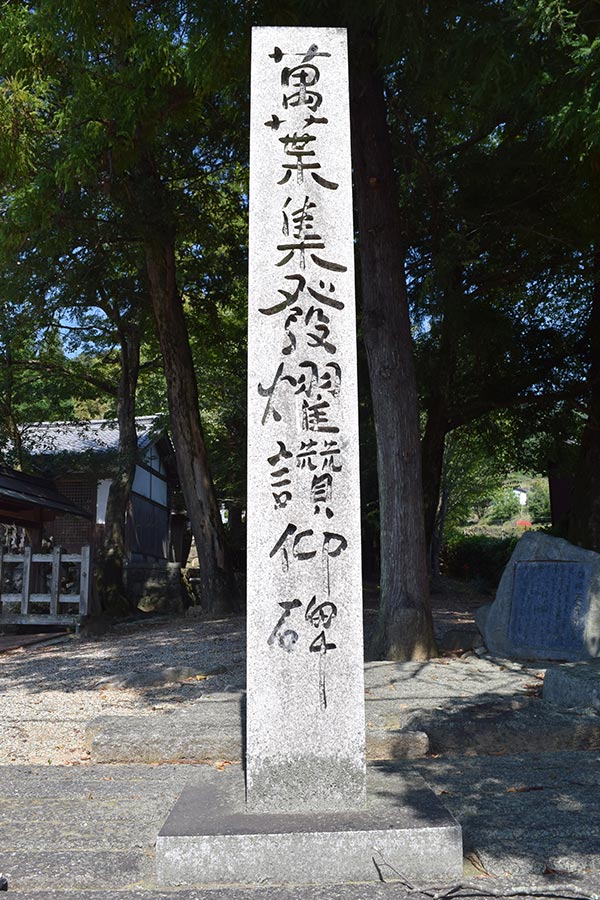 萬葉集發燿讃仰碑